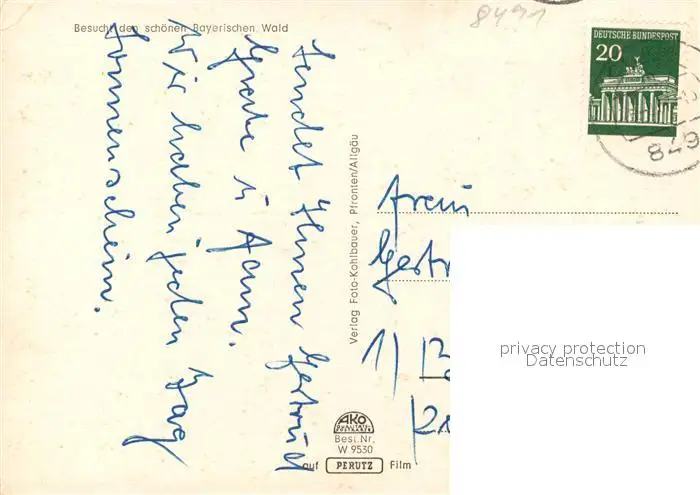 Besucht den schönen Bayerischen Wald
8491
DEUTSCHE BUNDESPOST
20
849
sendet Ihnen Gertrud
Grete u. Fam.
Wir haben jeden Tag
Sonnenschein.
Verlag Foto-Kohlbauer, Pfronten/Allgäu
Frau
Gertr
1)
privacy protection
Datenschutz
AKO
QUALITÄTS-
POSTKARTE
Best.Nr.
W 9530
auf PERUTZ Film